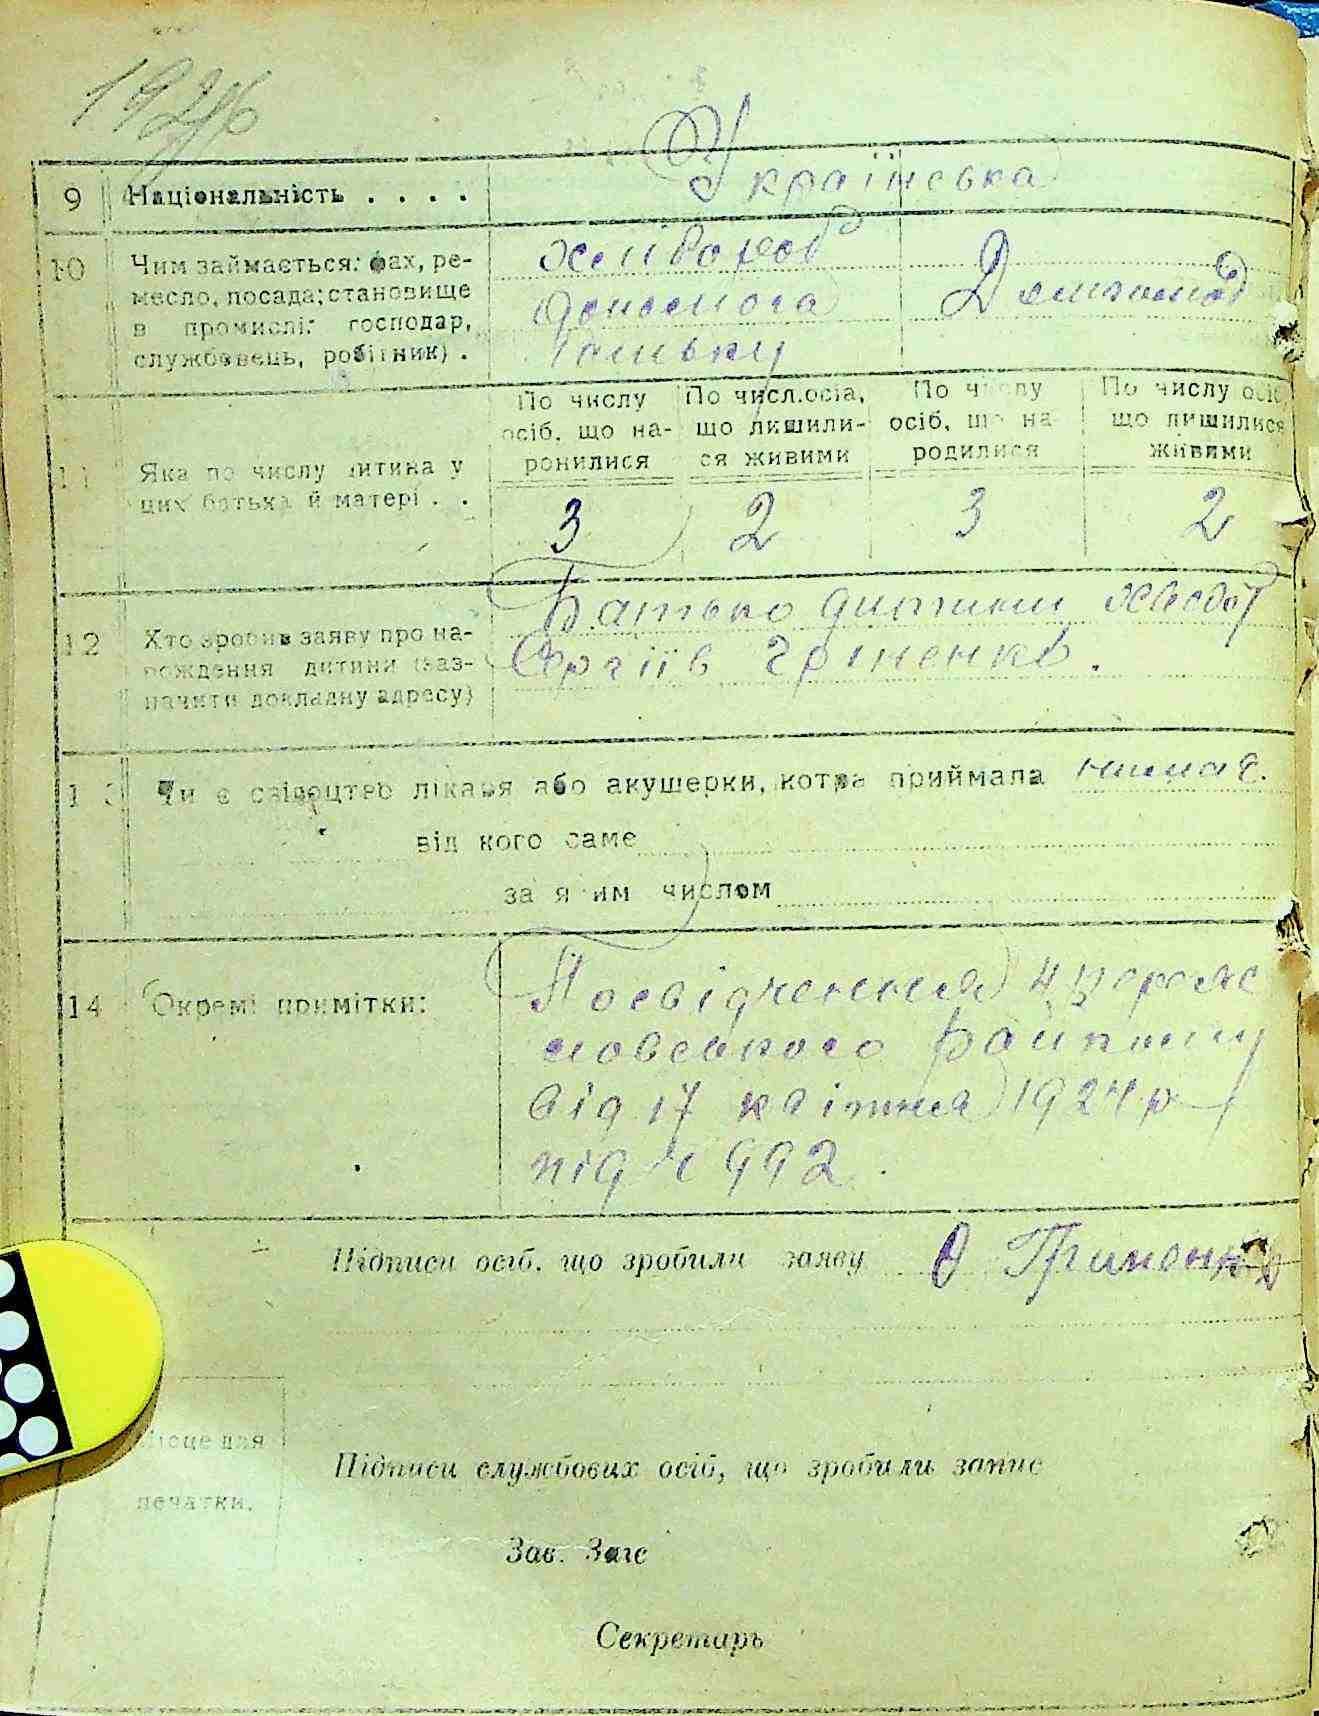 192
9 Національність . . . . Українська
10 Чим займається: фах, ре-
месло, посада; становище
в промислі: господар,
службовець, робітник) .
Хлібороб
допомога
батьку
По числу осіб, що на-ронилися
По числ.осіа, що лишили-ся живими
По числу осіб, що на-родилися
По числу осіб, що лишилися живими
11 Яка по числу дитина у
цих батька й матері . .
3 2 3 2
12 Хто зробив заяву про на-
рождення дитини (заз-
начити докладну адресу)
Батько дитини
Сергіїв Гриненко.
13 Чи є свідоцтво лікаря або акушерки, котра приймала немає.
від кого саме
за яким числом
14 Окремі примітки:
Посвідчення
новського Райпому
від 17 квітня 1924 р
під ч 992.
Підписи осіб, що зробили заяву О Гриненко
Місце для
печатки.
Підписи службових осіб, що зробили запис
Зав. Загс
Секретарь